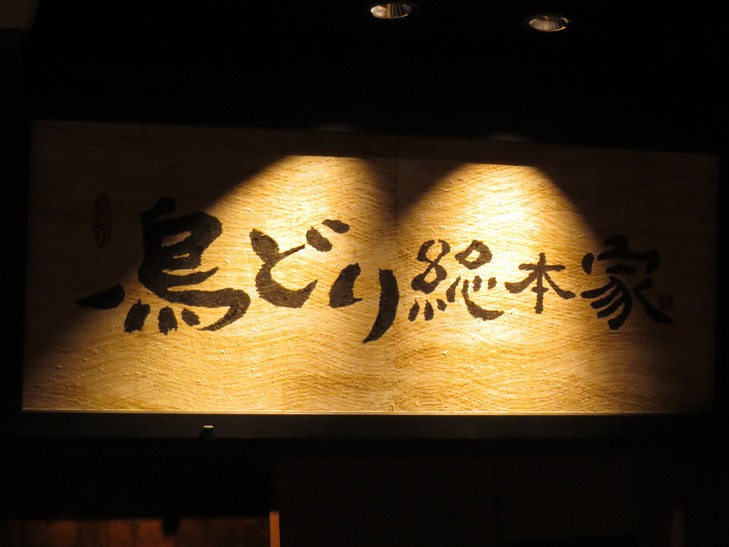 鳥どり総本家